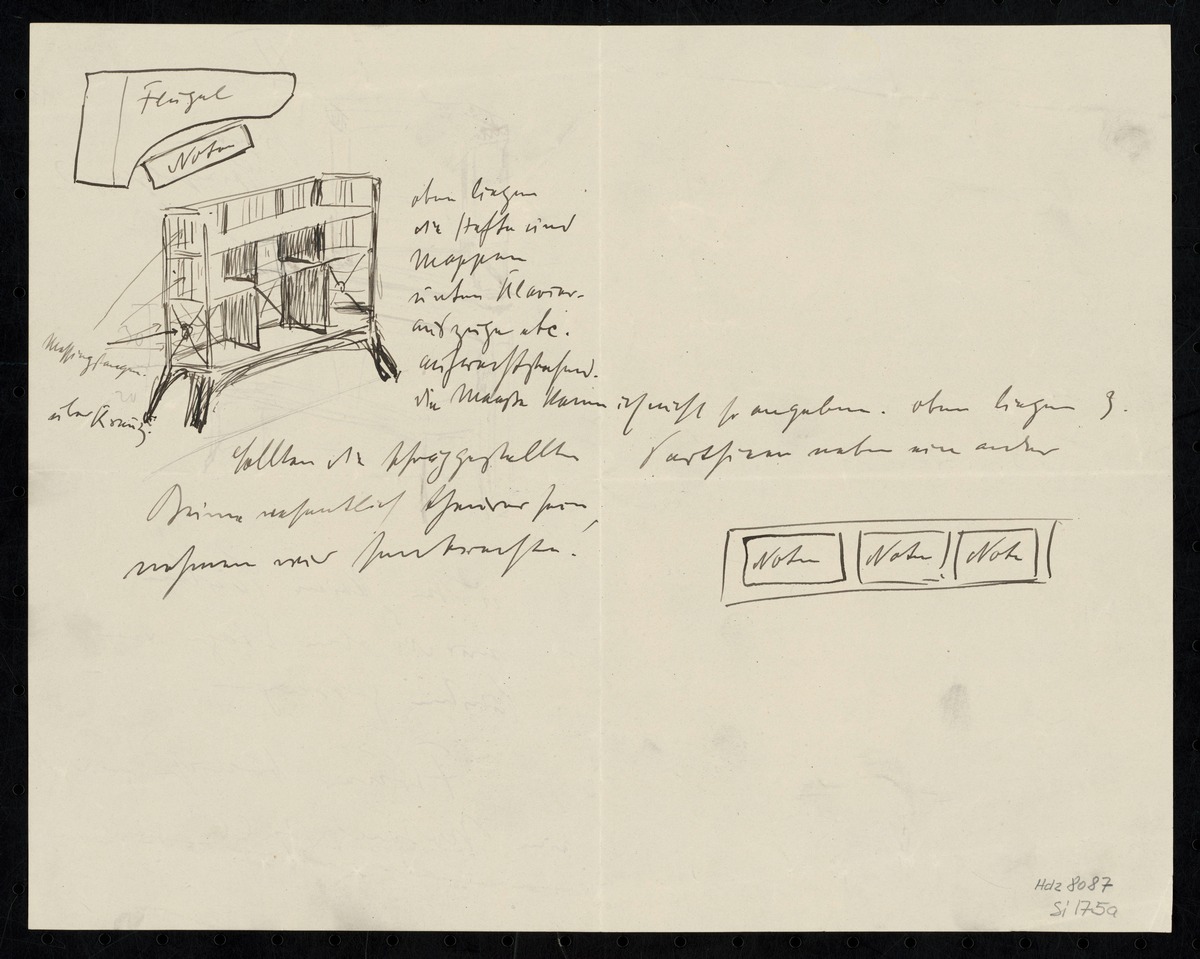 Flügel
Noten
oben liegen
die Hefte und
Mappen
unten Klavier-
auszüge etc.
aufrechtstehend.
die Maaße kann ich nicht so angeben. oben liegen 3.
Messingstangen.
über Kreuz.
Sollten die schräggestellten
Partituren neben einander
Beine wesentlich theurer sein,
nehmen wir senkrechte.
Noten
Noten
Noten
Hdz 8087
Si 175a